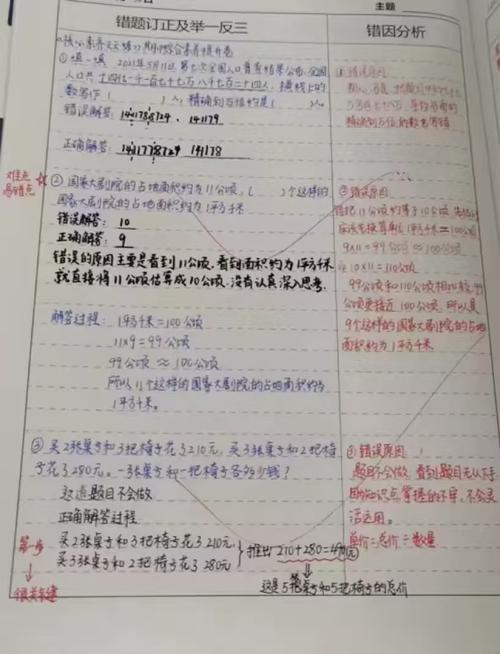 主题
错题订正及举一反三
错因分析
①填一填 2021年5月11日,第七次全国人口普查结果公布,全国
人口共十四亿一千一百七十七万八千七百二十四人,横线上的
数写作( )人,精确到万位约是( )人。
错误解答:
正确解答:1411778724 141178
难点
易错点
②国家大剧院的占地面积约为11公顷,( )个这样的
国家大剧院的占地面积约为1平方千米
错误解答:10
正确解答:9
错误的原因主要是看到11公顷,看到面积约为1平方千米
就直接将11公顷估算成10公顷,没有认真深入思考.
解答过程: 1平方千米=100公顷
11×9=99公顷
99公顷≈100公顷
所以11个这样的国家大剧院的占地面积约为
1平方千米。
①错误原因
②错误原因
错把11公顷约等于10公顷,
应该先换算单位1平方千米=100公顷
9×11=99公顷≈100公顷
10×11=110公顷
99公顷和110公顷相比较,99
公顷更接近100公顷,所以是
9个这样的国家大剧院的占地
面积约为1平方千米
③买2张桌子和3把椅子花了210元,买3张桌子和2把椅
子花了280元。一张桌子和一把椅子各多少钱?
这道题目不会做
正确解答过程
第一步
买2张桌子和3把椅子花了210元
买3张桌子和2把椅子花了280元
推出210+280=490元
很关键
这是5张桌子和5把椅子的总价
③错误原因
题目不会做,看到题目无从下手
知识点掌握的不牢,不会灵
活运用。
单价=总价÷数量